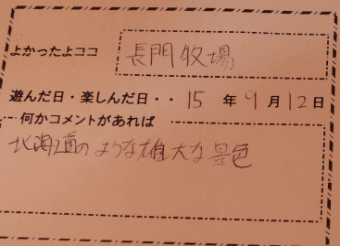 よかったよココ 長門牧場
遊んだ日・楽しんだ日・・ 15 年 9 月 12 日
何かコメントがあれば
北海道のような雄大な景色